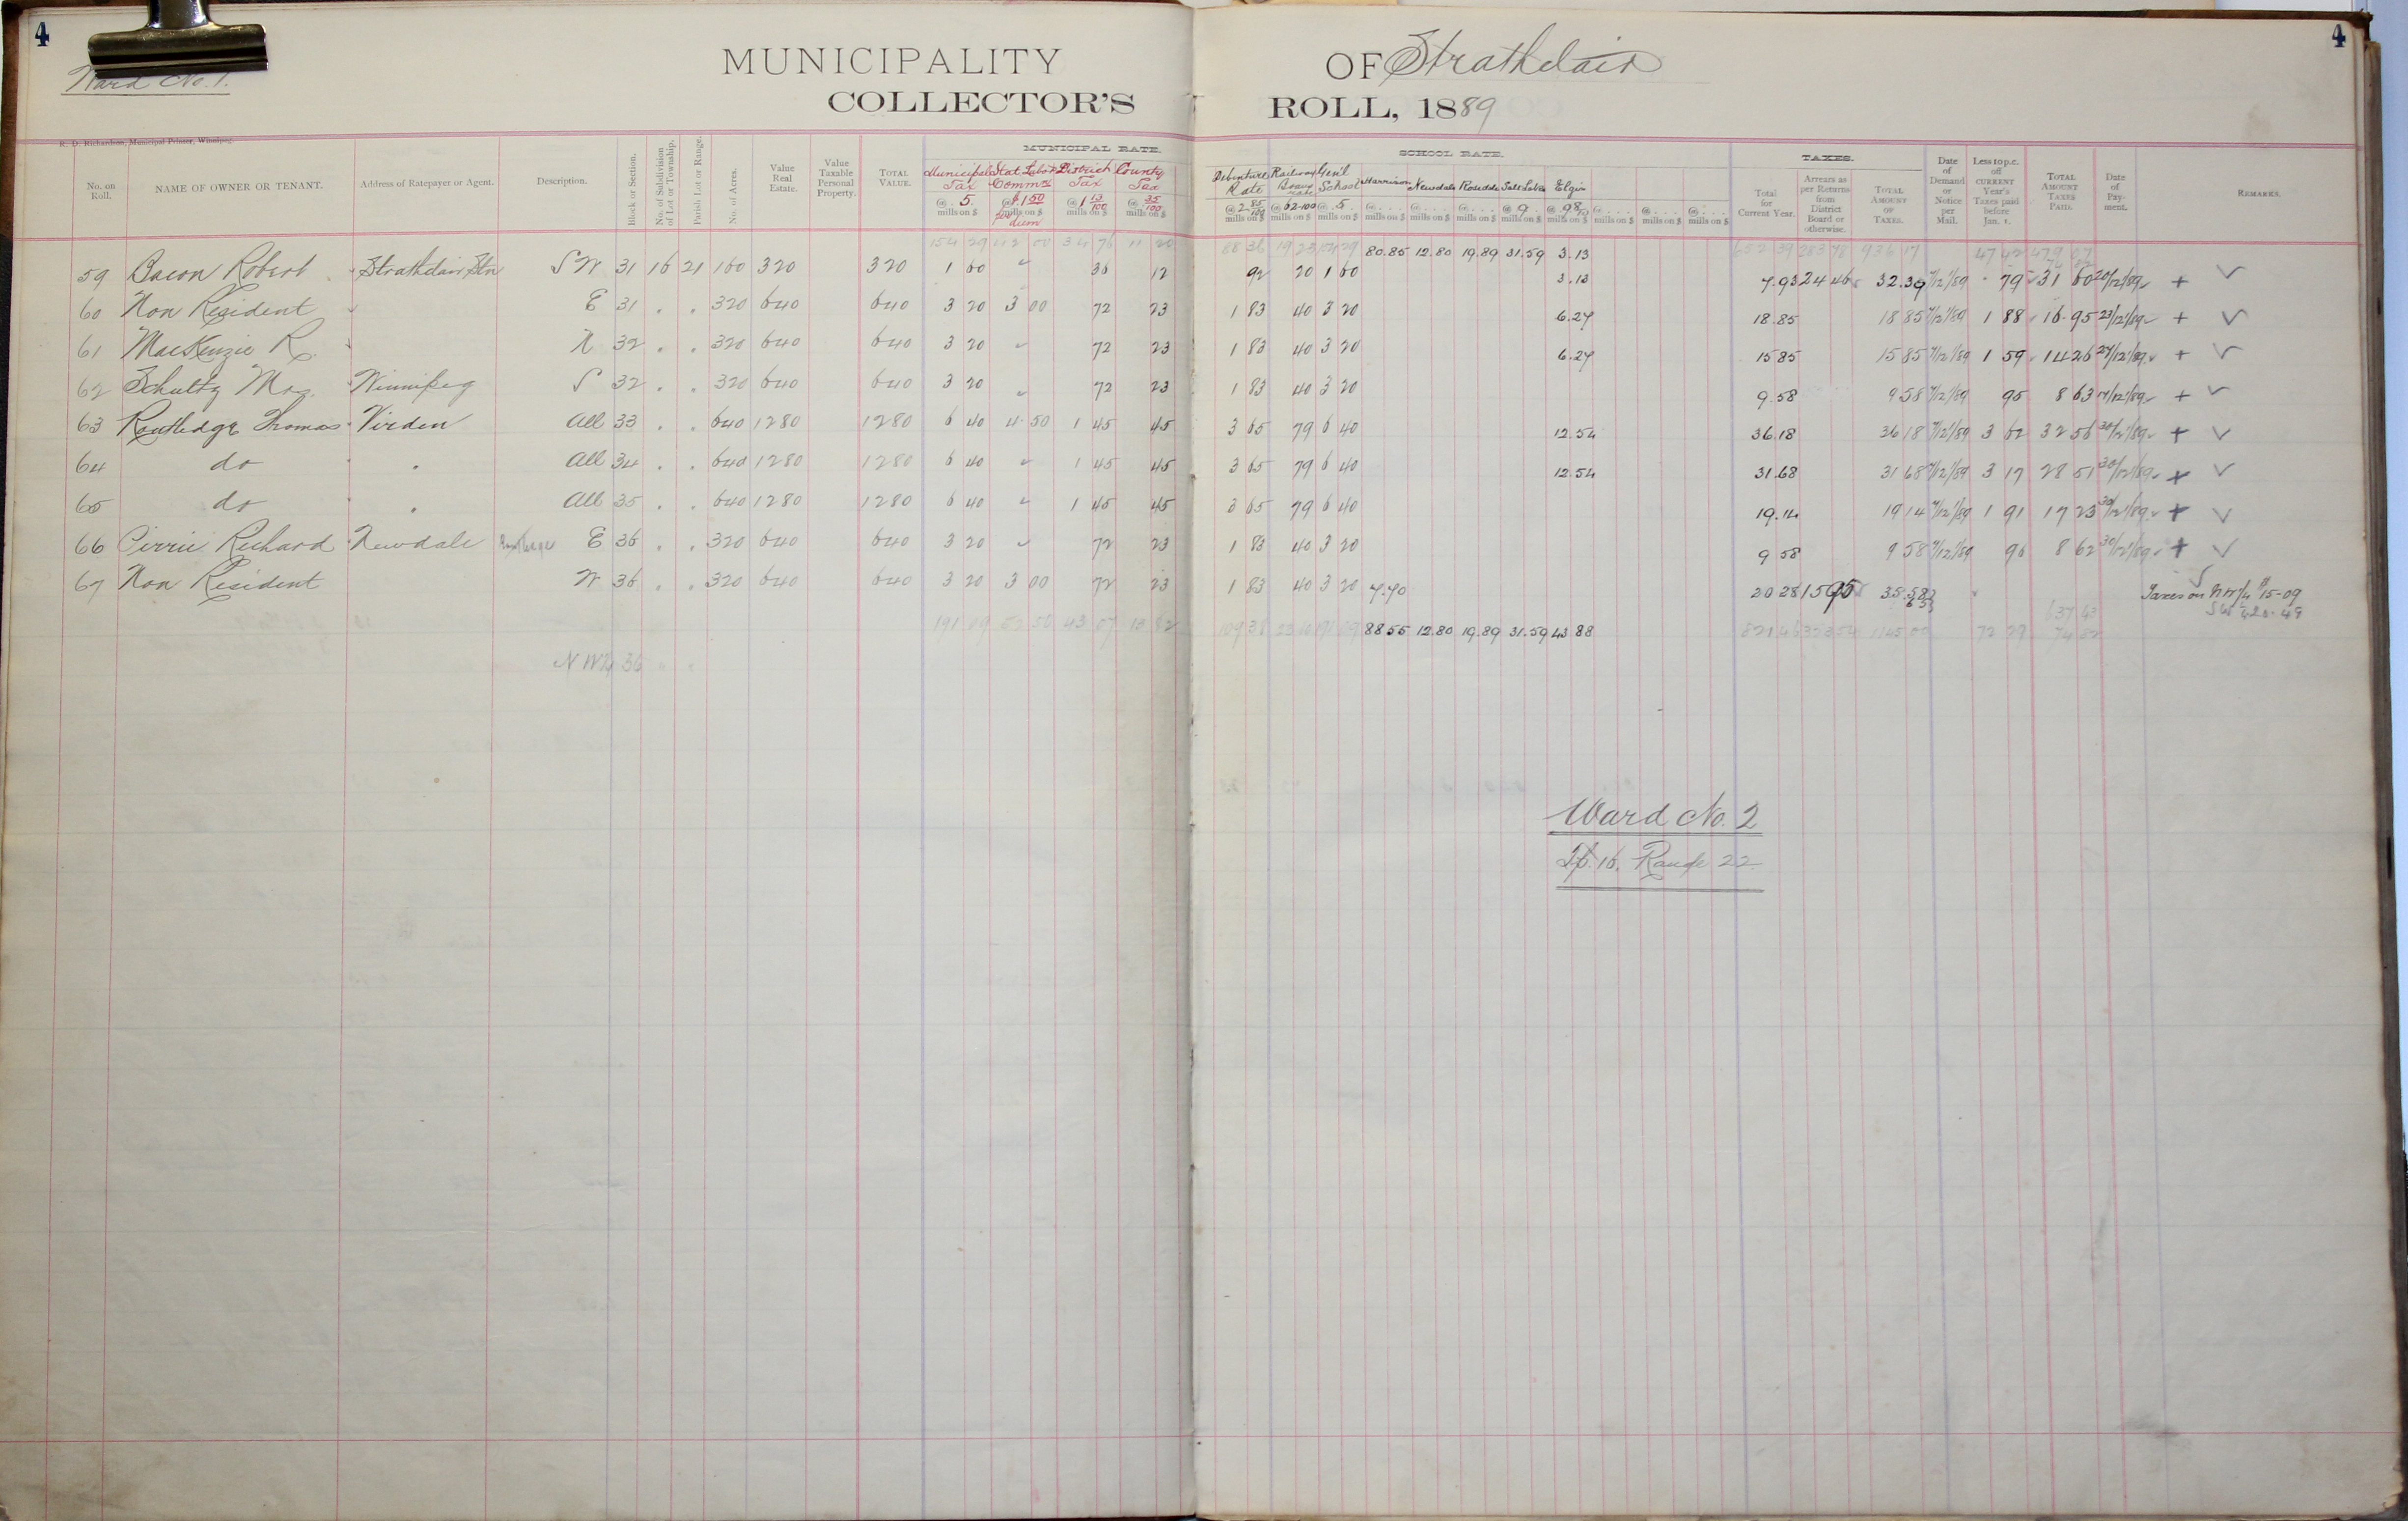 4 4
Ward No. 1.
MUNICIPALITY OF Strathclair
COLLECTOR'S ROLL, 1889
R. D. Richardson, Municipal Printer, Winnipeg.
MUNICIPAL RATE. SCHOOL RATE. TAXES.
No. on Roll. NAME OF OWNER OR TENANT. Address of Ratepayer or Agent. Description. Block or Section. No. of Subdivision of Lot or Township. Parish Lot or Range. No. of Acres. Value Real Estate. Value Taxable Personal Property. TOTAL VALUE. Municipal Tax @ 5. mills on $ Stat Labor Comm @ $1 50 District Tax @ 1 13/100 mills on $ County Tax @ 35/100 mills on $ Debenture Rate @ 2 85/100 mills on $ Railway @ 62-100 mills on $ Gen'l School @ 5. mills on $ Harrison @ mills on $ Newdale @ mills on $ Rosedale @ mills on $ Salt Lake @ 9 mills on $ Elgin @ 98/10 mills on $ @ mills on $ @ mills on $ @ mills on $ Total for Current Year. Arrears as per Returns from District Board or otherwise. TOTAL AMOUNT OF TAXES. Date of Demand or Notice per Mail. Less 10 p.c. off CURRENT Year's Taxes paid before Jan. 1. TOTAL AMOUNT TAXES PAID. Date of Payment. REMARKS.
154 29 112 00 34 76 11 20 88 36 19 23 154 29 80.85 12.80 19.89 31.59 3.13 652 39 283 78 936 17 47 42 479 07
59 Bacon Robert Strathclair Stn S W 31 16 21 160 320 320 1 60 " 36 12 92 20 1 60 3.13 7.93 24 46 32.39 7/12/89 79 31 60 20/12/89 + ✓
60 Non Resident E 31 . . 320 640 640 3 20 3 00 72 23 1 83 40 3 20 6.27 18.85 18 85 7/12/89 1 88 16.95 23/12/89 + ✓
61 MacKenzie R. N 32 . . 320 640 640 3 20 " 72 23 1 83 40 3 20 6.27 15 85 15 85 7/12/89 1 59 14 26 24/12/89 + ✓
62 Schultz Mrs. Winnipeg S 32 . . 320 640 640 3 20 " 72 23 1 83 40 3 20 9.58 9 58 7/12/89 95 8 63 17/12/89 + ✓
63 Routledge Thomas Virden All 33 . . 640 1280 1280 6 40 4.50 1 45 45 3 65 79 6 40 12.54 36.18 36 18 7/12/89 3 62 32 56 30/12/89 + ✓
64 do . All 34 . . 640 1280 1280 6 40 " 1 45 45 3 65 79 6 40 12.54 31.68 31 68 7/12/89 3 17 28 51 30/12/89 + ✓
65 do . All 35 . . 640 1280 1280 6 40 " 1 45 45 3 65 79 6 40 19.14 19 14 7/12/89 1 91 17 23 30/12/89 + ✓
66 Pirrie Richard Newdale E 36 . . 320 640 640 3 20 " 72 23 1 83 40 3 20 9 58 9 58 7/12/89 96 8 62 30/12/89 + ✓
67 Non Resident W 36 . . 320 640 640 3 20 3 00 72 23 1 83 40 3 20 7.70 20 28 15 35.58 Taxes on N W 1/4 $15-09
S W 1/4 20.49
191 09 43 07 13 82 109 38 191 09 88 55 12.80 19.89 31.59 43 88 1145 00 72 29 637 43
N W 1/4 36 " "
Ward No. 2
Tp. 16, Range 22